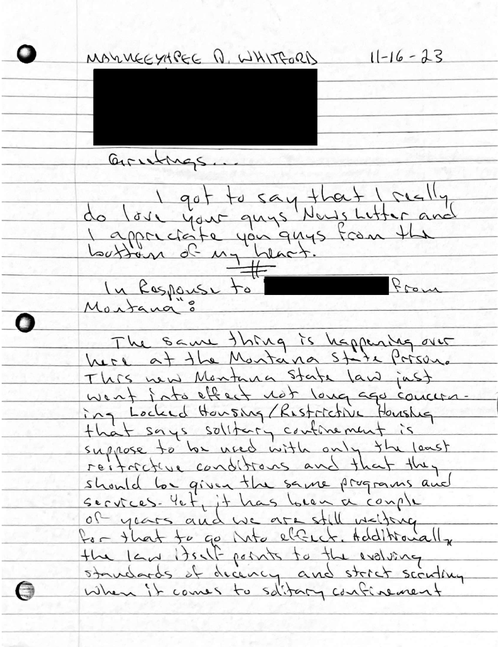 D. WHITFORD 11-16-23
Greetings...
I got to say that I really
do love your guys News Letter and
I appreciate you guys from the
bottom of my heart.
In Response to From
Montana":
The same thing is happening over
here at the Montana State Prison.
This new Montana State law just
went into effect not long ago concern-
ing Locked Housing/Restrictive Housing
that says solitary confinement is
suppose to be used with only the least
restrictive conditions and that they
should be given the same programs and
services. Yet, it has been a couple
of years and we are still waiting
for that to go into effect. Additionally,
the law itself points to the evolving
standards of decency and strict scrutiny
when it comes to solitary confinement